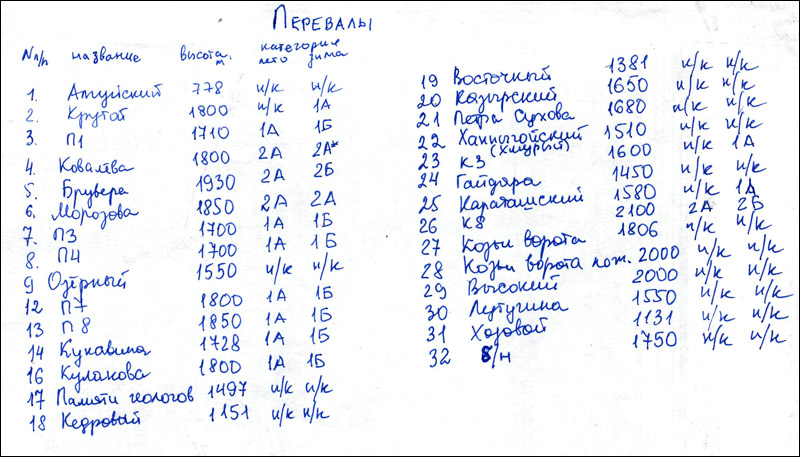 ПЕРЕВАЛЫ
Nп/р название высота, м категория лето зима
1. Алгуйский 778 н/к н/к
2. Крутой 1800 н/к 1А
3. П1 1710 1А 1Б
4. Ковалёва 1800 2А 2А*
5. Брувера 1930 2А 2Б
6. Морозова 1850 2А 2А
7. П3 1700 1А 1Б
8. П4 1700 1А 1Б
9 Озёрный 1550 н/к н/к
12 П7 1800 1А 1Б
13 П8 1850 1А 1Б
14 Кукавина 1728 1А 1Б
16 Кулакова 1800 1А 1Б
17 Памяти геологов 1497 н/к н/к
18 Кедровый 1151 н/к н/к
19 Восточный 1381 н/к н/к
20 Казырский 1650 н/к н/к
21 Петра Сухова 1680 н/к н/к
22 (хмурый) 1510 н/к н/к
23 К3 1600 н/к 1А
24 Гайдара 1450 н/к н/к
25 Караташский 1580 н/к 1А
26 К8 2100 2А 2Б
27 Козьи ворота 1806 н/к н/к
28 Козьи ворота лож. 2000 н/к н/к
29 Высокий 2000 н/к н/к
30 Лутугина 1550 н/к н/к
31 Ходовой 1131 н/к н/к
32 б/н 1750 н/к н/к